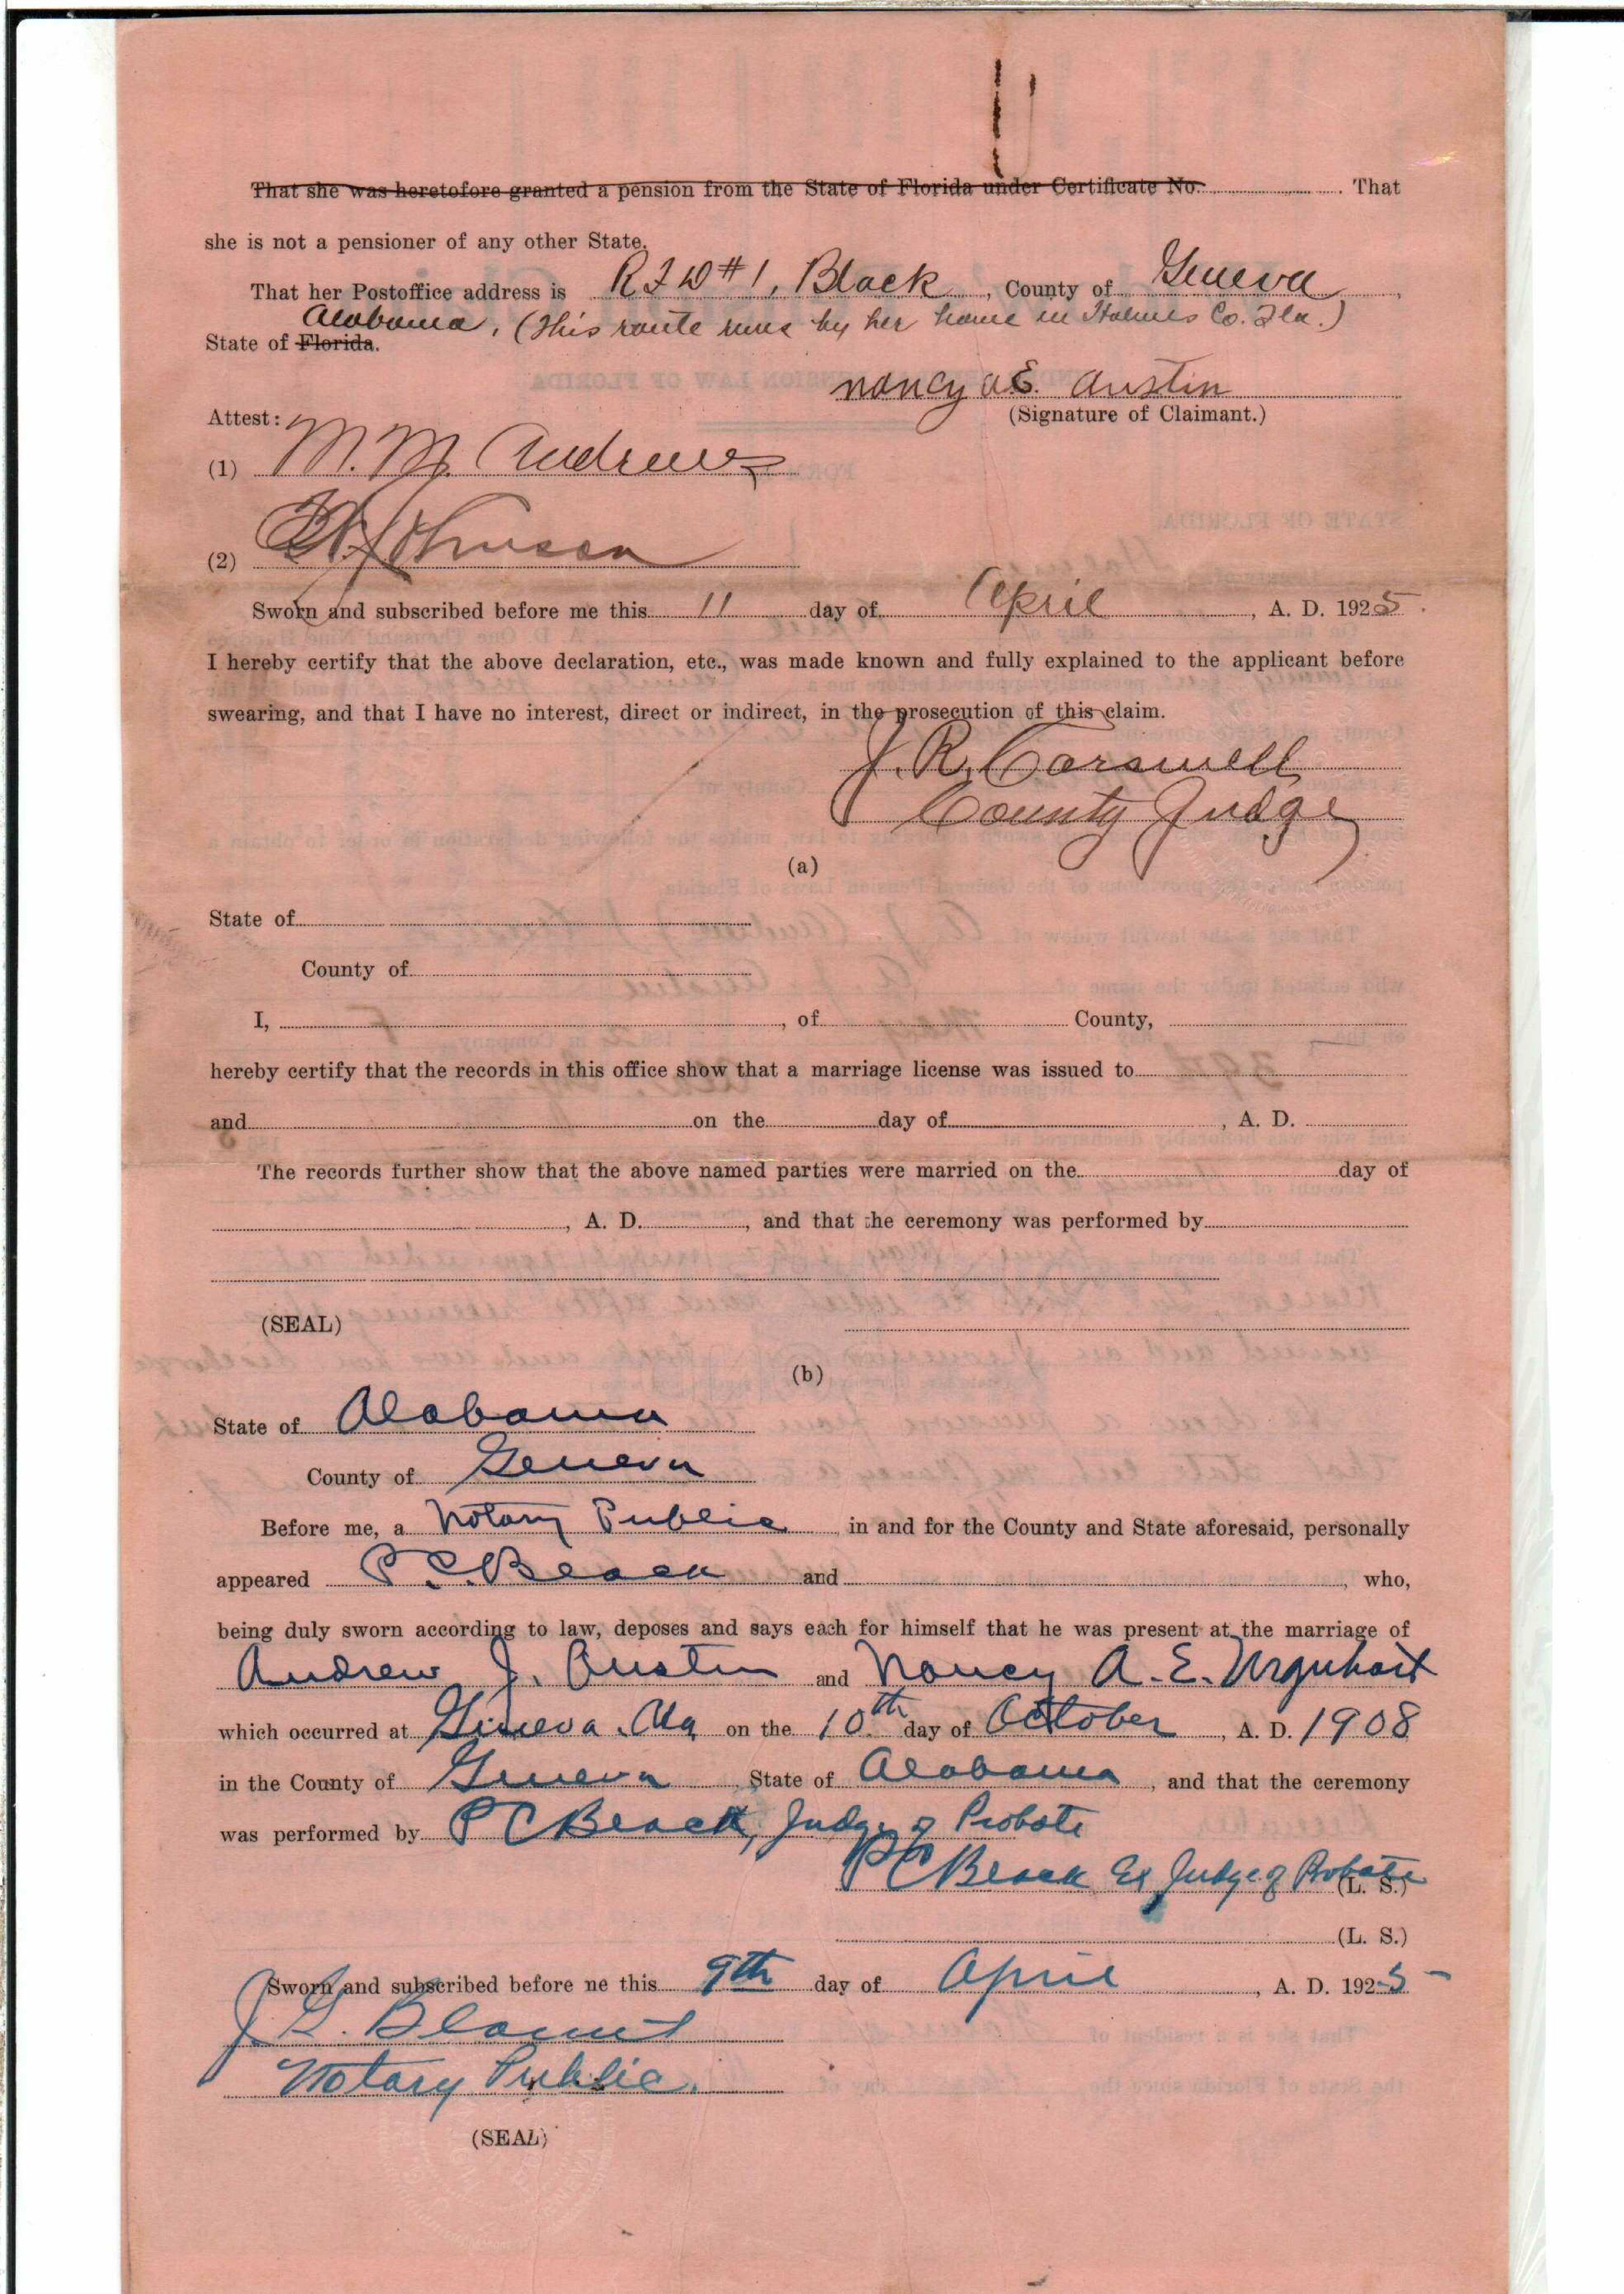 That she was heretofore granted a pension from the State of Florida under Certificate No. . That
she is not a pensioner of any other State.
That her Postoffice address is R F D #1, Black, County of Geneva,
Alabama, (This route runs by her home in Holmes Co. Fla.)
State of Florida.
Nancy A E. Austin
Attest: (Signature of Claimant.)
(1) M. M. Andrews
(2) Johnson
Sworn and subscribed before me this 11 day of April, A. D. 1925.
I hereby certify that the above declaration, etc., was made known and fully explained to the applicant before
swearing, and that I have no interest, direct or indirect, in the prosecution of this claim.
J. R. Carswell
County Judge
(a)
State of
County of
I, , of County,
hereby certify that the records in this office show that a marriage license was issued to
and on the day of , A. D.
The records further show that the above named parties were married on the day of
, A. D. , and that the ceremony was performed by
(SEAL)
(b)
State of Alabama
County of Geneva
Before me, a Notary Public in and for the County and State aforesaid, personally
appeared P. C. Black and , who,
being duly sworn according to law, deposes and says each for himself that he was present at the marriage of
Andrew J. Austin and Nancy A. E. Urquhart
which occurred at Geneva. Ala on the 10th day of October, A. D. 1908
in the County of Geneva State of Alabama, and that the ceremony
was performed by P C Black, Judge of Probate
P C Black Ex Judge of Probate
(L. S.)
(L. S.)
Sworn and subscribed before ne this 9th day of April, A. D. 1925
J. G. Blount
Notary Public.
(SEAL)